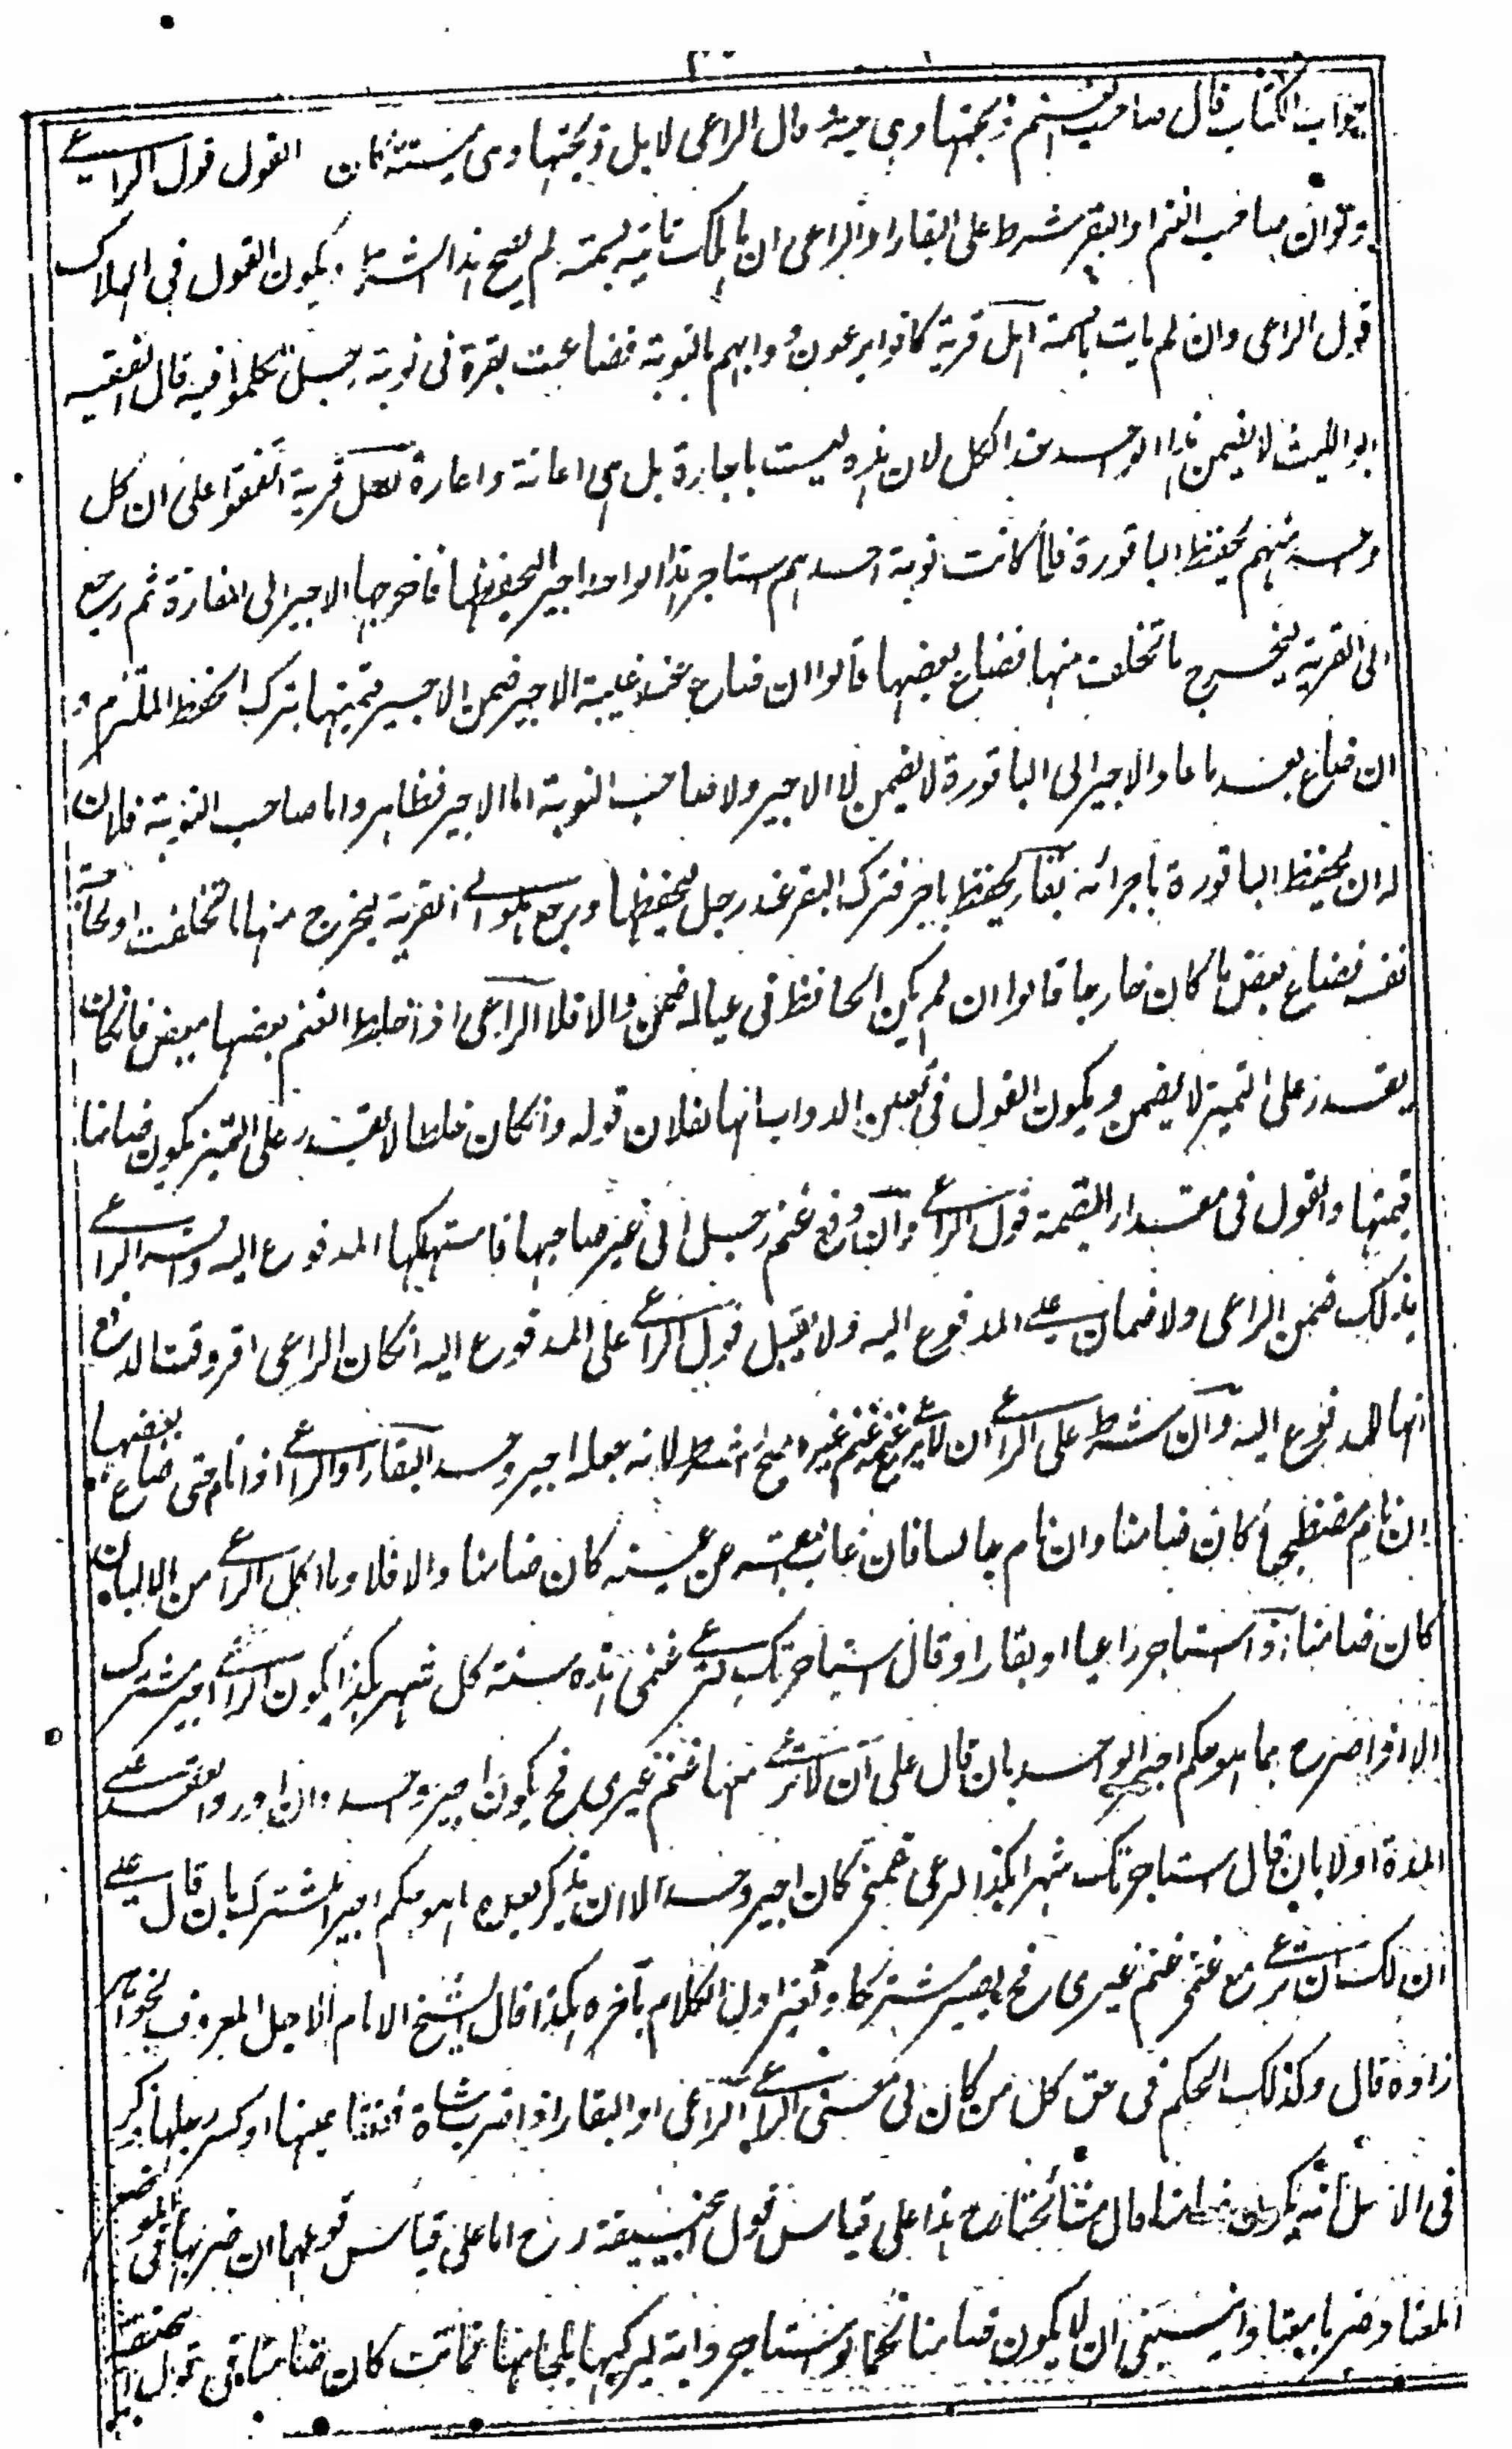 جواب الكتاب قال صاحب الغنم ذبحتها وهى حية وقال الراعى لا بل ذبحتها وهى ميتة كان القول قول الراعى
ولو ان صاحب الغنم او البقر شرط على البقار او الراعى ان ما هلك تاتيه بسمته لم يصح هذا الشرط ويكون القول فى الهلاك
قول الراعى وان لم يات بالسمة اهل قرية كانوا يرعون دوابهم بالنوبة فضاعت بقرة فى نوبة رجل تكلموا فيه قال الفقيه
ابو الليث لا يضمن هذا الرجل عند الكل لان هذه ليست باجارة بل هى اعانة واعارة اهل قرية اتفقوا على ان كل
واحد منهم يحفظ الباقورة فلما كانت نوبة احدهم استاجر هذا الواحد اجيرا ليحفظها فاخرجها الاجير الى المفازة ثم رجع
الى القرية ليخرج ما تخلفت منها فضاع بعضها قالوا ان ضاع عند غيبة الاجير ضمن الاجير قيمتها بترك الحفظ الملتزم و
ان ضاع بعد ما عاد الاجير الى الباقورة لا يضمن لا الاجير ولا صاحب النوبة اما الاجير فظاهر واما صاحب النوبة فلان
له ان يحفظ الباقورة باجرائه بقار يحفظ باجر فترك البقر عند رجل ليحفظها ويرجع هو الى القرية ليخرج منها ما تخلفت او لحاجة
نفسه فضاع بعض ما كان خارجا قالوا ان لم يكن الحافظ فى عياله ضمن والا فلا الراعى اذا خلط الغنم بعضها ببعض فان كان
يقدر على التميز لا يضمن ويكون القول فى تعيين الدواب انها لفلان قوله وان كان خلطا لا يقدر على التميز يكون ضامنا
قيمتها والقول فى مقدار القيمة قول الراعى وان دفع غنم رجل الى غير صاحبها فاستهلكها المدفوع اليه واقر الراعى
بذلك ضمن الراعى ولا ضمان على المدفوع اليه ولا يقبل قول الراعى على المدفوع اليه ان كان الراعى اقر وقت الدفع
انها للمدفوع اليه وان شرط على الراعى ان لا يرعى مع غنمه غنم غيره صح الشرط لانه جعله اجير وحد البقار او الراعى اذا نام حتى ضاع بعضها
ان نام مضطجعا كان ضامنا وان نام جالسا فان غاب بعضه عن عينه كان ضامنا والا فلا وما اكل الراعى من الالبان
كان ضامنا واذا استاجر راعيا او بقارا وقال استاجرتك لترعى غنمى هذه سنة كل شهر بكذا يكون الراعى اجير مشترك
الا اذا صرح بما هو حكم اجير الوحد بان قال على ان لا ترعى معها غنم غيرى فح يكون اجير وحد وان اورد العقد على
المدة اولا بان قال استاجرتك شهرا بكذا لرعى غنمى كان اجير وحد الا ان يذكر بعده ما هو حكم اجير المشترك بان قال على
ان لك ان ترعى مع غنمى غنم غيرى فح يصير مشتركا وتغير اول الكلام بآخره هكذا قال الشيخ الامام الاجل المعروف بخواهر
زاده قال وكذلك الحكم فى حق كل من كان فى معنى الراعى الراعى او البقار اذا ضرب شاة ففقا عينها او كسر رجلها ذكر
فى الاصل انه يكون ضامنا قال مشائخنا رح هذا على قياس قول ابى حنيفة رح اما على قياس قولهما ان ضربها فى الموضع
المعتاد ضربا معتادا ينبغى ان لا يكون ضامنا كما لو استاجر دابة ليركبها فكبحها فماتت كان ضامنا فى قول ابى حنيفة